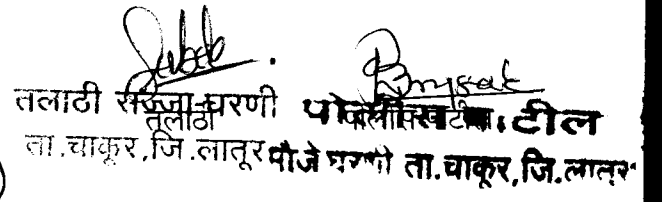 तलाठी सज्जा घरणी
तलाठी
ता.चाकूर,जि.लातूर
पोलीस पाटील
पोलीस पाटील
मौजे घरणी ता.चाकूर,जि.लातूर